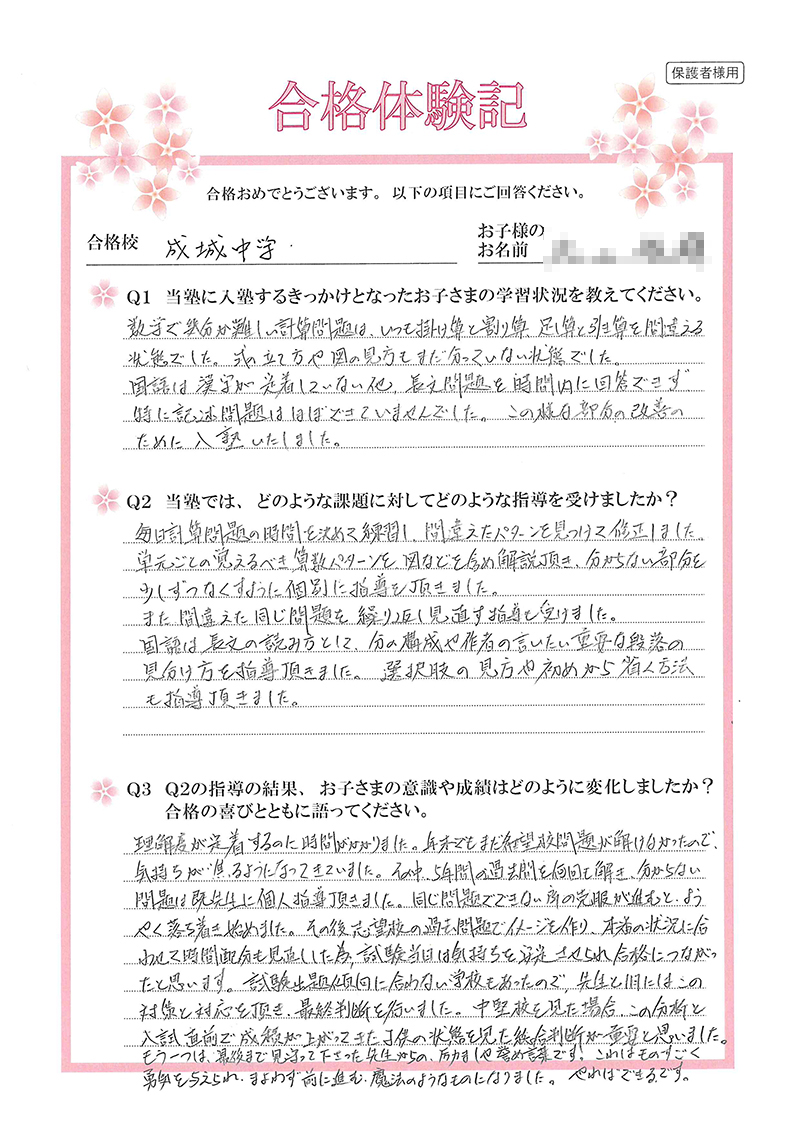 保護者様用
合格体験記
合格おめでとうございます。以下の項目にご回答ください。
合格校 成城中学
お子様の
お名前
Q1 当塾に入塾するきっかけとなったお子さまの学習状況を教えてください。
数学で養分が難しい計算問題は、いつも掛け算と割り算、足し算と引き算を間違える
状態でした。式の立て方や図の見方もまだ分っていない状態でした。
国語は漢字が定着していない他、長文問題を時間内に回答できず
特に記述問題はほぼできていませんでした。この様な部分の改善の
ために入塾いたしました。
Q2 当塾では、どのような課題に対してどのような指導を受けましたか？
毎日計算問題の時間を決めて練習し、間違えたパターンを見つけて修正しました。
単元ごとの覚えるべき算数パターンを、図などを含め解説頂き、分からない部分を
少しずつなくすように個別に指導を頂きました。
また間違えた同じ問題を繰り返し見直す指導を受けました。
国語は長文の読み方として、分の構成や作者の言いたい重要な段落の
見分け方を指導頂きました。選択肢の見方や初めから省く方法
も指導頂きました。
Q3 Q2の指導の結果、お子さまの意識や成績はどのように変化しましたか？
合格の喜びとともに語ってください。
理解度が定着するのに時間がかかりました。年末でもまだ希望校問題が解けなかったので、
気持ちが焦るようになってきていました。その中、5年間の過去問を何回も解き、分からない
問題は既先生に個人指導頂きました。同じ問題でできない所の克服が進むと、よう
やく落ち着き始めました。その後志望校の過去問題でイメージを作り、本番の状況に合
わせて時間配分も見直しした為、試験当日は気持ちを安定させられ合格につながっ
たと思います。試験出題傾向に合わない学校もあったので、先生と1月にはこの
対策と対応を頂き、最終判断を行いました。中堅校を見た場合、この分析と
入試直前で成績が上がってきた子供の状態を見た総合判断が重要と思いました。
もう一つは、最後まで見守って下さった先生からの、励ましや誉め言葉です！これはものすごく
勇気を与えられ、まよわず前に進む、魔法のようなものになりました。やればできるです。